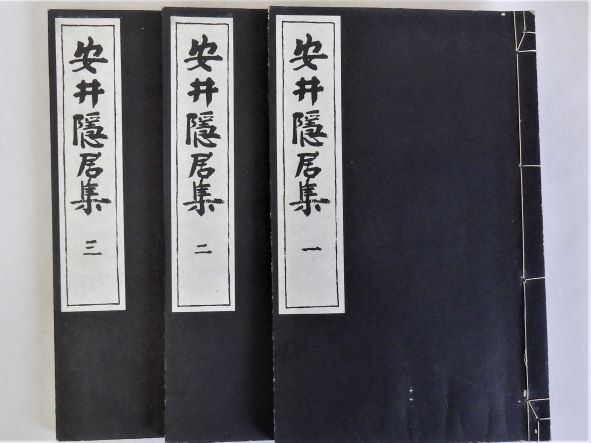 安井隱居集 一
安井隱居集 二
安井隱居集 三